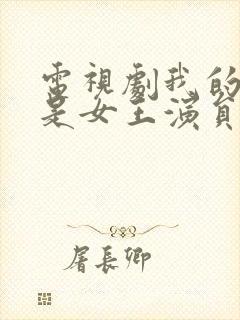 電視劇我的
是女王演員
屠長卿